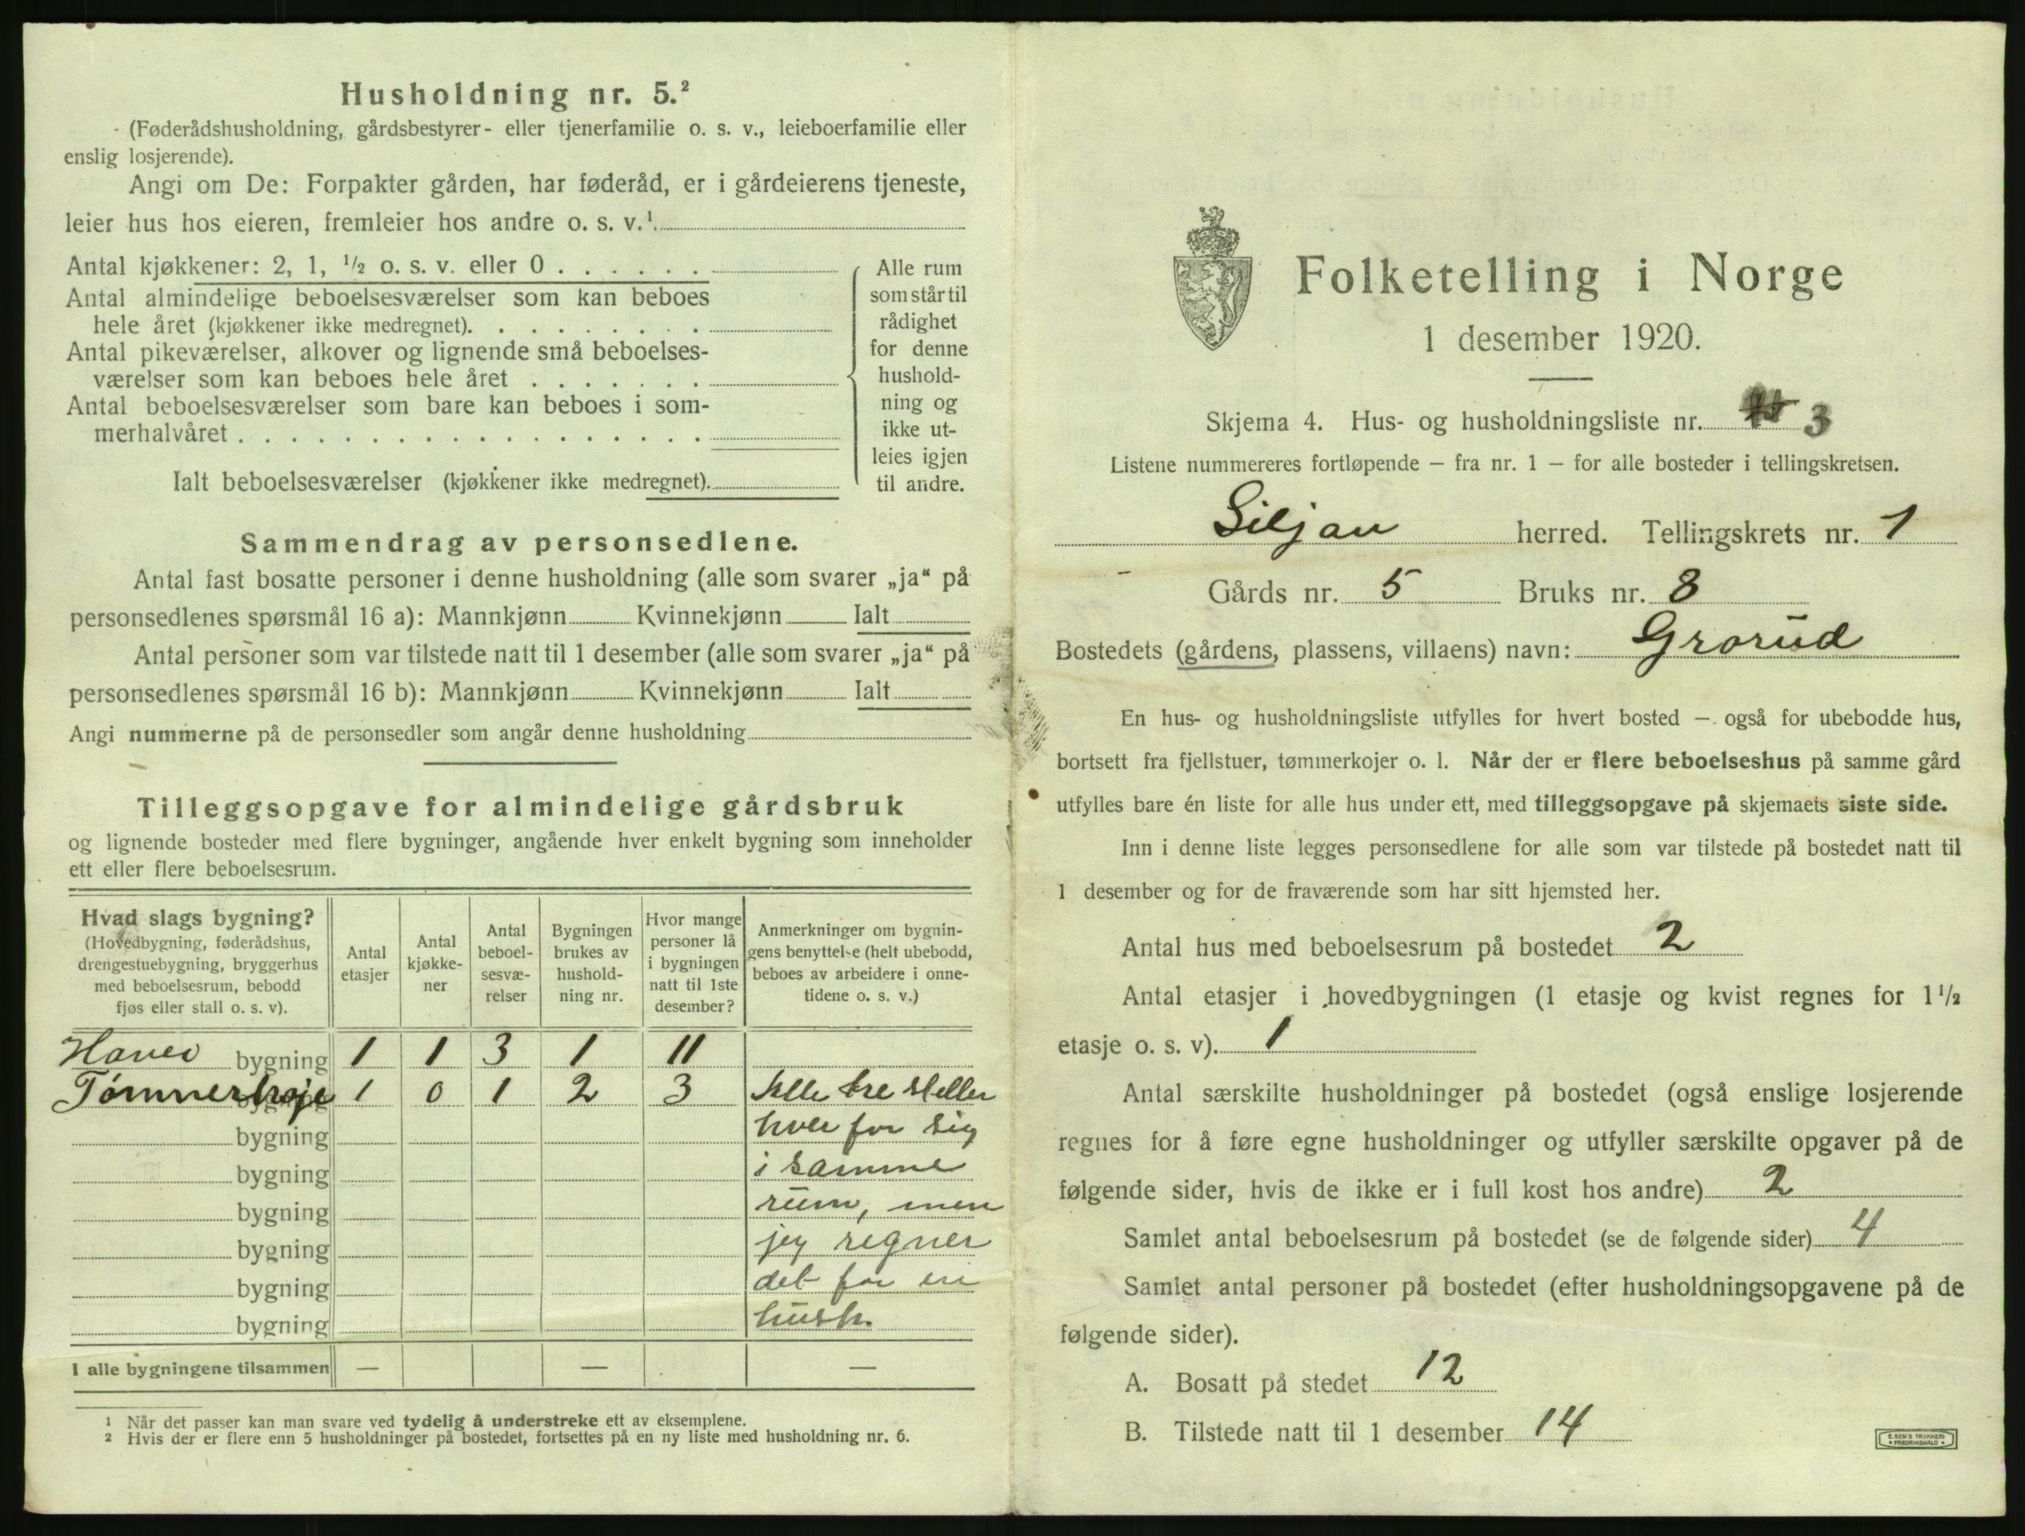 Husholdning nr. 5.²
(Føderådshusholdning, gårdsbestyrer- eller tjenerfamilie o. s. v., leieboerfamilie eller
enslig losjerende).
Angi om De: Forpakter gården, har føderåd, er i gårdeierens tjeneste,
leier hus hos eieren, fremleier hos andre o. s. v.¹
Antal kjøkkener: 2, 1, ½ o. s. v. eller 0
Antal almindelige beboelsesværelser som kan beboes
hele året (kjøkkener ikke medregnet)
Antal pikeværelser, alkover og lignende små beboelses-
værelser som kan beboes hele året
Antal beboelsesværelser som bare kan beboes i som-
merhalvåret
Ialt beboelsesværelser (kjøkkener ikke medregnet)
Alle rum
som står til
rådighet
for denne
hushold-
ning og
ikke ut-
leies igjen
til andre.
Sammendrag av personsedlene.
Antal fast bosatte personer i denne husholdning (alle som svarer „ja“ på
personsedlenes spørsmål 16 a): Mannkjønn Kvinnekjønn Ialt
Antal personer som var tilstede natt til 1 desember (alle som svarer „ja“ på
personsedlenes spørsmål 16 b): Mannkjønn Kvinnekjønn Ialt
Angi nummerne på de personsedler som angår denne husholdning
Tilleggsopgave for almindelige gårdsbruk
og lignende bosteder med flere bygninger, angående hver enkelt bygning som inneholder
ett eller flere beboelsesrum.
Hvad slags bygning?
(Hovedbygning, føderådshus,
drengestuebygning, bryggerhus
med beboelsesrum, bebodd
fjøs eller stall o. s. v).
Antal
etasjer
Antal
kjøkke-
ner
Antal
beboel-
sesvæ-
relser
Bygningen
brukes av
hushold-
ning nr.
Hvor mange
personer lå
i bygningen
natt til 1ste
desember?
Anmerkninger om bygnin-
gens benyttelse (helt ubebodd,
beboes av arbeidere i onne-
tidene o. s. v.)
bygning 1 1 3 1 11
Tømmerkoje bygning 1 0 1 2 3 Alle tre steller
bygning hver for sig
bygning i samme
bygning rum, men
bygning jeg regner
bygning det for en
bygning hush.
I alle bygningene tilsammen — — —
¹ Når det passer kan man svare ved tydelig å understreke ett av eksemplene.
² Hvis der er flere enn 5 husholdninger på bostedet, fortsettes på en ny liste med husholdning nr. 6.
Folketelling i Norge
1 desember 1920.
Skjema 4. Hus- og husholdningsliste nr. 3
Listene nummereres fortløpende – fra nr. 1 – for alle bosteder i tellingskretsen.
Siljan herred. Tellingskrets nr. 1
Gårds nr. 5 Bruks nr. 8
Bostedets (gårdens, plassens, villaens) navn: Grorud
En hus- og husholdningsliste utfylles for hvert bosted – også for ubebodde hus,
bortsett fra fjellstuer, tømmerkojer o. l. Når der er flere beboelseshus på samme gård
utfylles bare én liste for alle hus under ett, med tilleggsopgave på skjemaets siste side.
Inn i denne liste legges personsedlene for alle som var tilstede på bostedet natt til
1 desember og for de fraværende som har sitt hjemsted her.
Antal hus med beboelsesrum på bostedet 2
Antal etasjer i hovedbygningen (1 etasje og kvist regnes for 1½
etasje o. s. v). 1
Antal særskilte husholdninger på bostedet (også enslige losjerende
regnes for å føre egne husholdninger og utfyller særskilte opgaver på de
følgende sider, hvis de ikke er i full kost hos andre) 2
Samlet antal beboelsesrum på bostedet (se de følgende sider) 4
Samlet antal personer på bostedet (efter husholdningsopgavene på de
følgende sider).
A. Bosatt på stedet 12
B. Tilstede natt til 1 desember 14